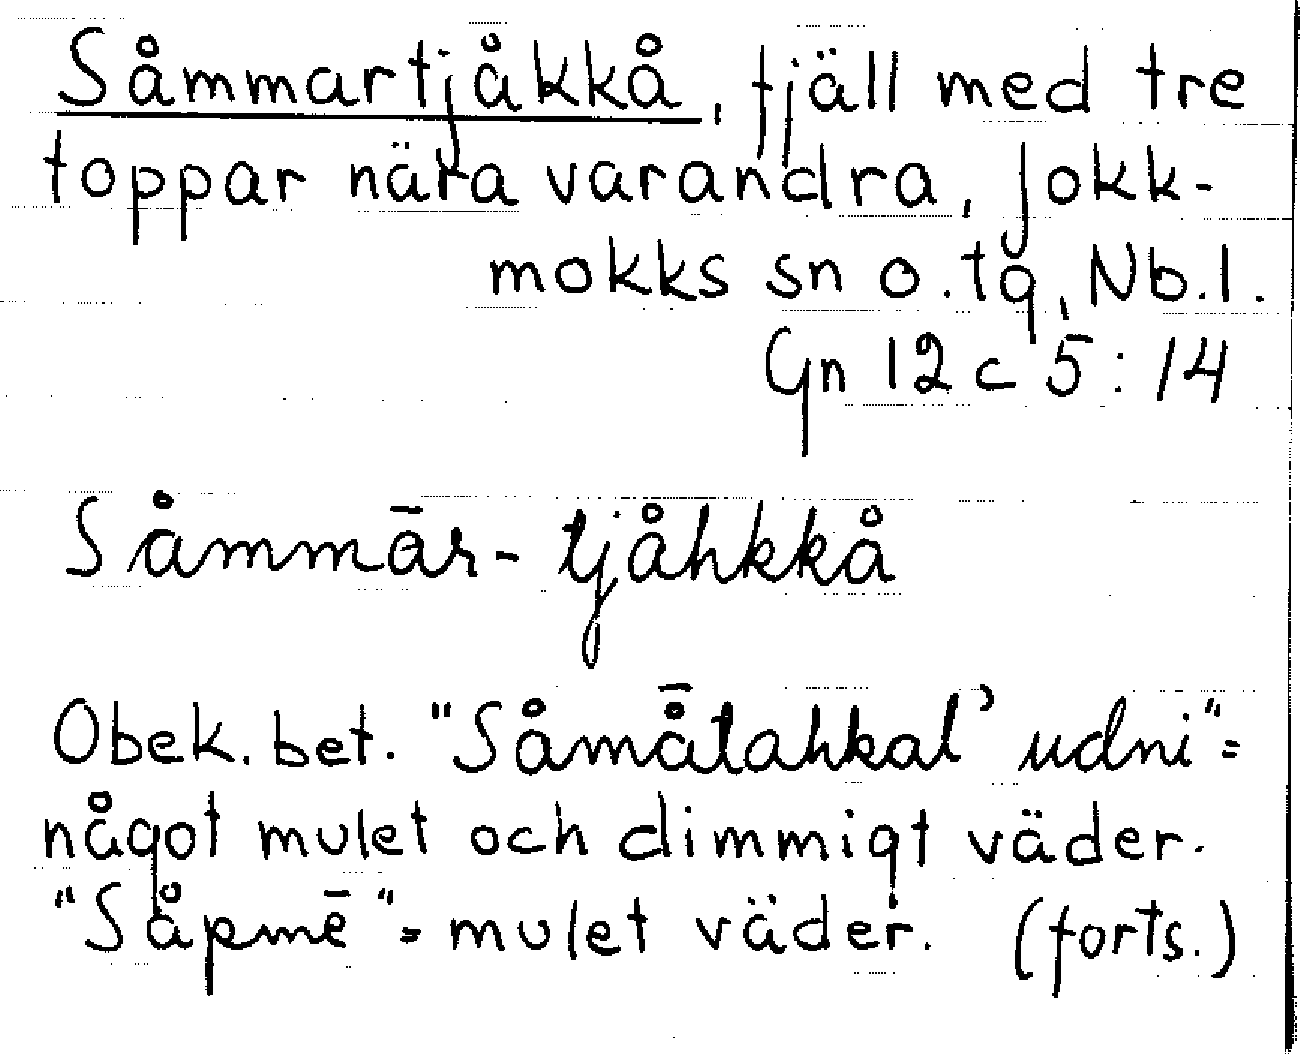 Såmmartjåkkå, fjäll med tre
toppar nära varandra, Jokk-
mokks sn o. tg, Nb. l.
Gn 12 c 5:14
Såmmār-tjåhkkå
Obek. bet. "Såmå̄tahkal' udni" =
något mulet och dimmigt väder.
"Såpmē" = mulet väder. (forts.)